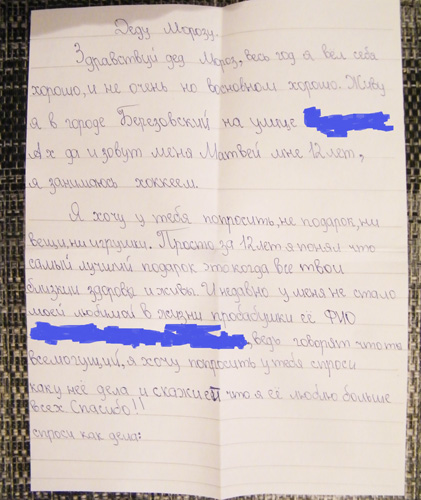 Деду Морозу.
Здравствуй дед Мороз, весь год я вел себя
хорошо, и не очень но восновном хорошо. Живу
я в городе Березовский на улице
Ах да и зовут меня Матвей мне 12 лет,
я занимаюсь хоккеем.
Я хочу у тебя попросить, не подарок, ни
вещи, ни игрушку. Просто за 12 лет я понял что
самый лучший подарок это когда все твои
близкии здоровы и живы. И недавно у меня не стало
моей любимой в жизни прабабушки её ФИО
, ведь говорят что ты
всемогущий, я хочу попросить у тебя спроси
как у неё дела и скажи ей что я её люблю больше
всех Спасибо!!
спроси как дела: